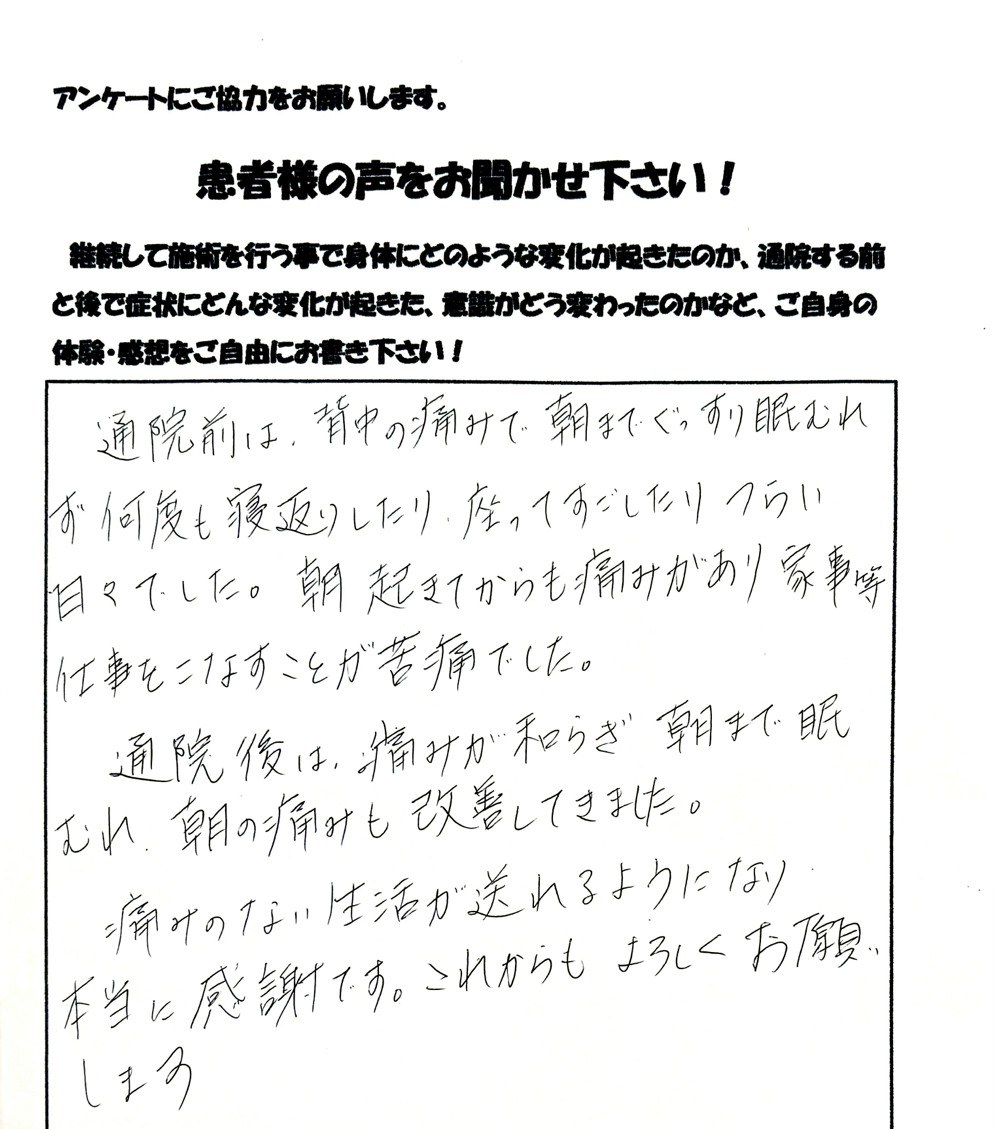 アンケートにご協力をお願いします。
患者様の声をお聞かせ下さい！
継続して施術を行う事で身体にどのような変化が起きたのか、通院する前
と後で症状にどんな変化が起きた、意識がどう変わったのかなど、ご自身の
体験・感想をご自由にお書き下さい！
通院前は、背中の痛みで朝までぐっすり眠むれ
ず何度も寝返りしたり、座ってすごしたりつらい
日々でした。朝起きてからも痛みがあり家事等
仕事をこなすことが苦痛でした。
通院後は、痛みが和らぎ朝まで眠
むれ、朝の痛みも改善してきました。
痛みのない生活が送れるようになり
本当に感謝です。これからもよろしくお願い
します